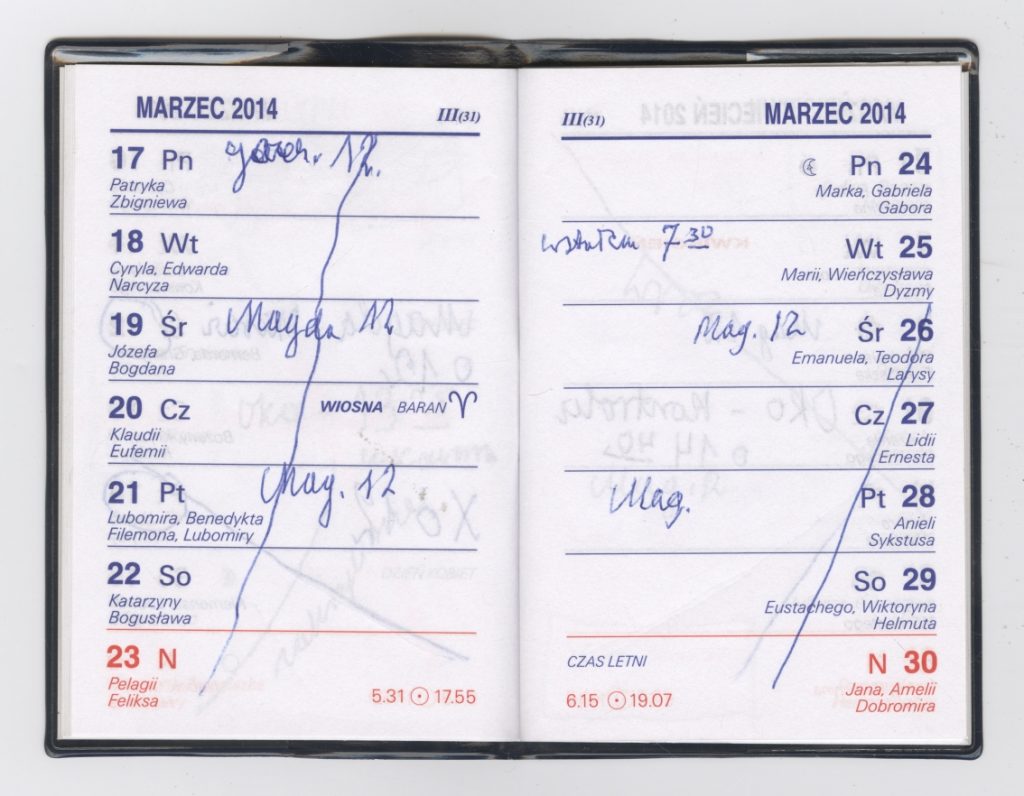 MARZEC 2014 III(31)
17 Pn 12.
Patryka
Zbigniewa
18 Wt
Cyryla, Edwarda
Narcyza
19 Śr Magda 12
Józefa
Bogdana
20 Cz WIOSNA BARAN ♈
Klaudii
Eufemii
21 Pt Mag. 12
Lubomira, Benedykta
Filemona, Lubomiry
22 So
Katarzyny
Bogusława
23 N
Pelagii
Feliksa 5.31 ☉ 17.55
III(31) MARZEC 2014
☾ Pn 24
Marka, Gabriela
Gabora
7 30 Wt 25
Marii, Wieńczysława
Dyzmy
Mag. 12 Śr 26
Emanuela, Teodora
Larysy
Cz 27
Lidii
Ernesta
Mag. Pt 28
Anieli
Sykstusa
So 29
Eustachego, Wiktoryna
Helmuta
CZAS LETNI N 30
6.15 ☉ 19.07 Jana, Amelii
Dobromira